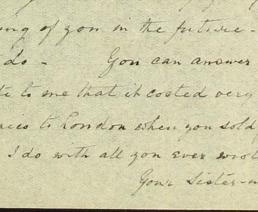 ng of you in the future -
do - You can answer
te to me that it costed very
ies to London when you sold
I do with all you ever wrot
Your Sister-